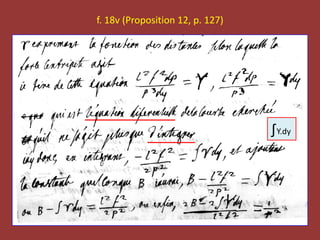 f. 18v (Proposition 12, p. 127)
Y exprimant la fonction des distances selon laquelle la
force agit
ie tire de cette equation l²f²dp/p³dy = Y, l²f²dp/p³ = Ydy
qui est l'equation differentielle de la courbe cherchée
∫Y.dy
qu'il ne s'agit plus que d'integrer
ay donc, en integrant, -l²f²/2p² = ∫Ydy, et ajoutant
la constante quelconque B j'auray, B - l²f²/2p² = ∫Ydy
ou B - ∫Ydy = l²f²/2p², ou enfin, 2B - 2∫Ydy/l²f² = 1/p²